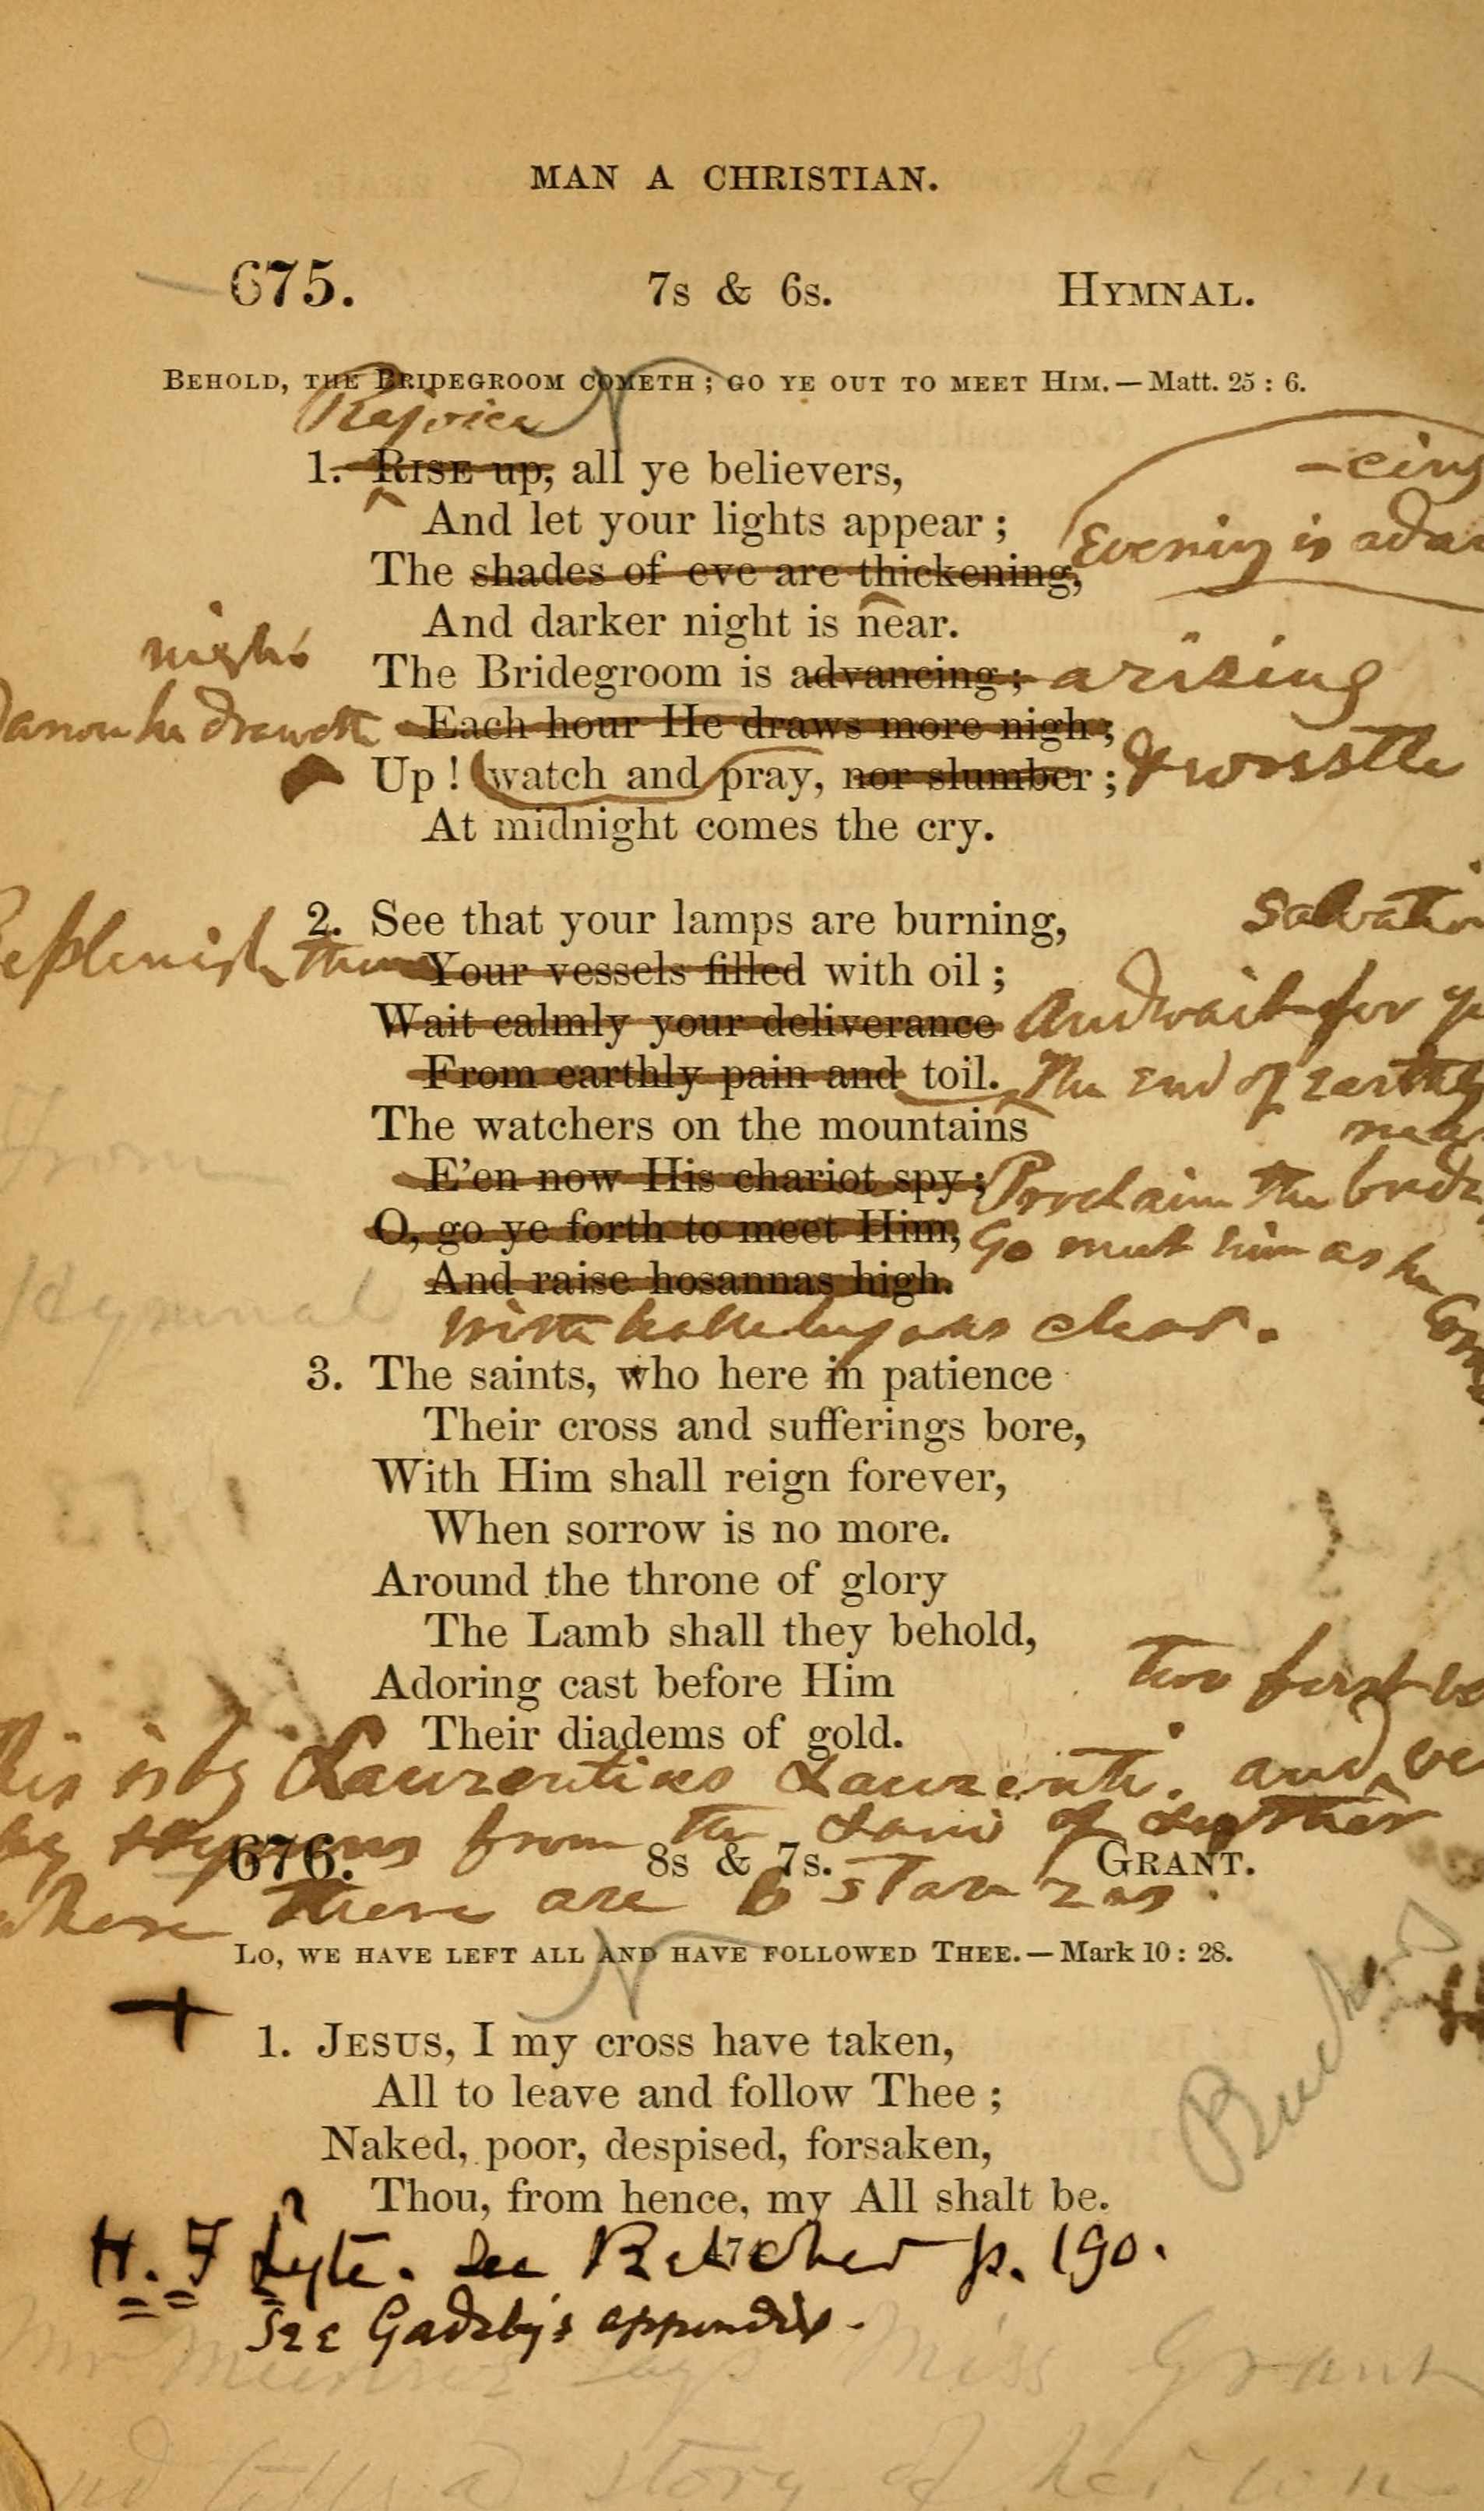 MAN A CHRISTIAN.
675. 7s & 6s. HYMNAL.
BEHOLD, THE BRIDEGROOM COMETH ; GO YE OUT TO MEET HIM. — Matt. 25 : 6.
Rejoice
1. RISE up, all ye believers,
-cing
And let your lights appear ;
Evening is
The shades of eve are thickening,
And darker night is near.
night
The Bridegroom is advancing ; arising
he draweth Each hour He draws more nigh ;
Up ! watch and pray, nor slumber ; & wrestle
At midnight comes the cry.
2. See that your lamps are burning,
Replenish them Your vessels filled with oil ;
Wait calmly your deliverance And wait for
From earthly pain and toil. The end of earthly
The watchers on the mountains
near
E'en now His chariot spy ; Proclaim the
O, go ye forth to meet Him, Go meet him as he
And raise hosannas high.
With hallelujahs clear.
3. The saints, who here in patience
Their cross and sufferings bore,
With Him shall reign forever,
When sorrow is no more.
Around the throne of glory
The Lamb shall they behold,
Adoring cast before Him
two first
Their diadems of gold.
is by Laurentius Laurenti. and
Hymns from the Land of Luther
676. 8s & 7s. GRANT.
where there are 6 stanzas.
LO, WE HAVE LEFT ALL AND HAVE FOLLOWED THEE. — Mark 10 : 28.
1. JESUS, I my cross have taken,
All to leave and follow Thee ;
Naked, poor, despised, forsaken,
Thou, from hence, my All shalt be.
H. F Lyte. See Belcher p. 190.
See Gadsby's appendix.
Miss Grant
story of her
From
Hymnal